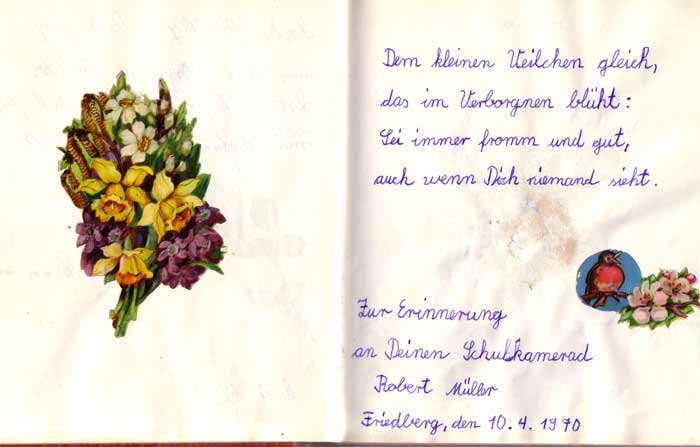 Dem kleinen Veilchen gleich,
das im Verborgnen blüht:
Sei immer fromm und gut,
auch wenn Dich niemand sieht.
Zur Erinnerung
an Deinen Schulkamerad
Robert Müller
Friedberg, den 10.4.1970